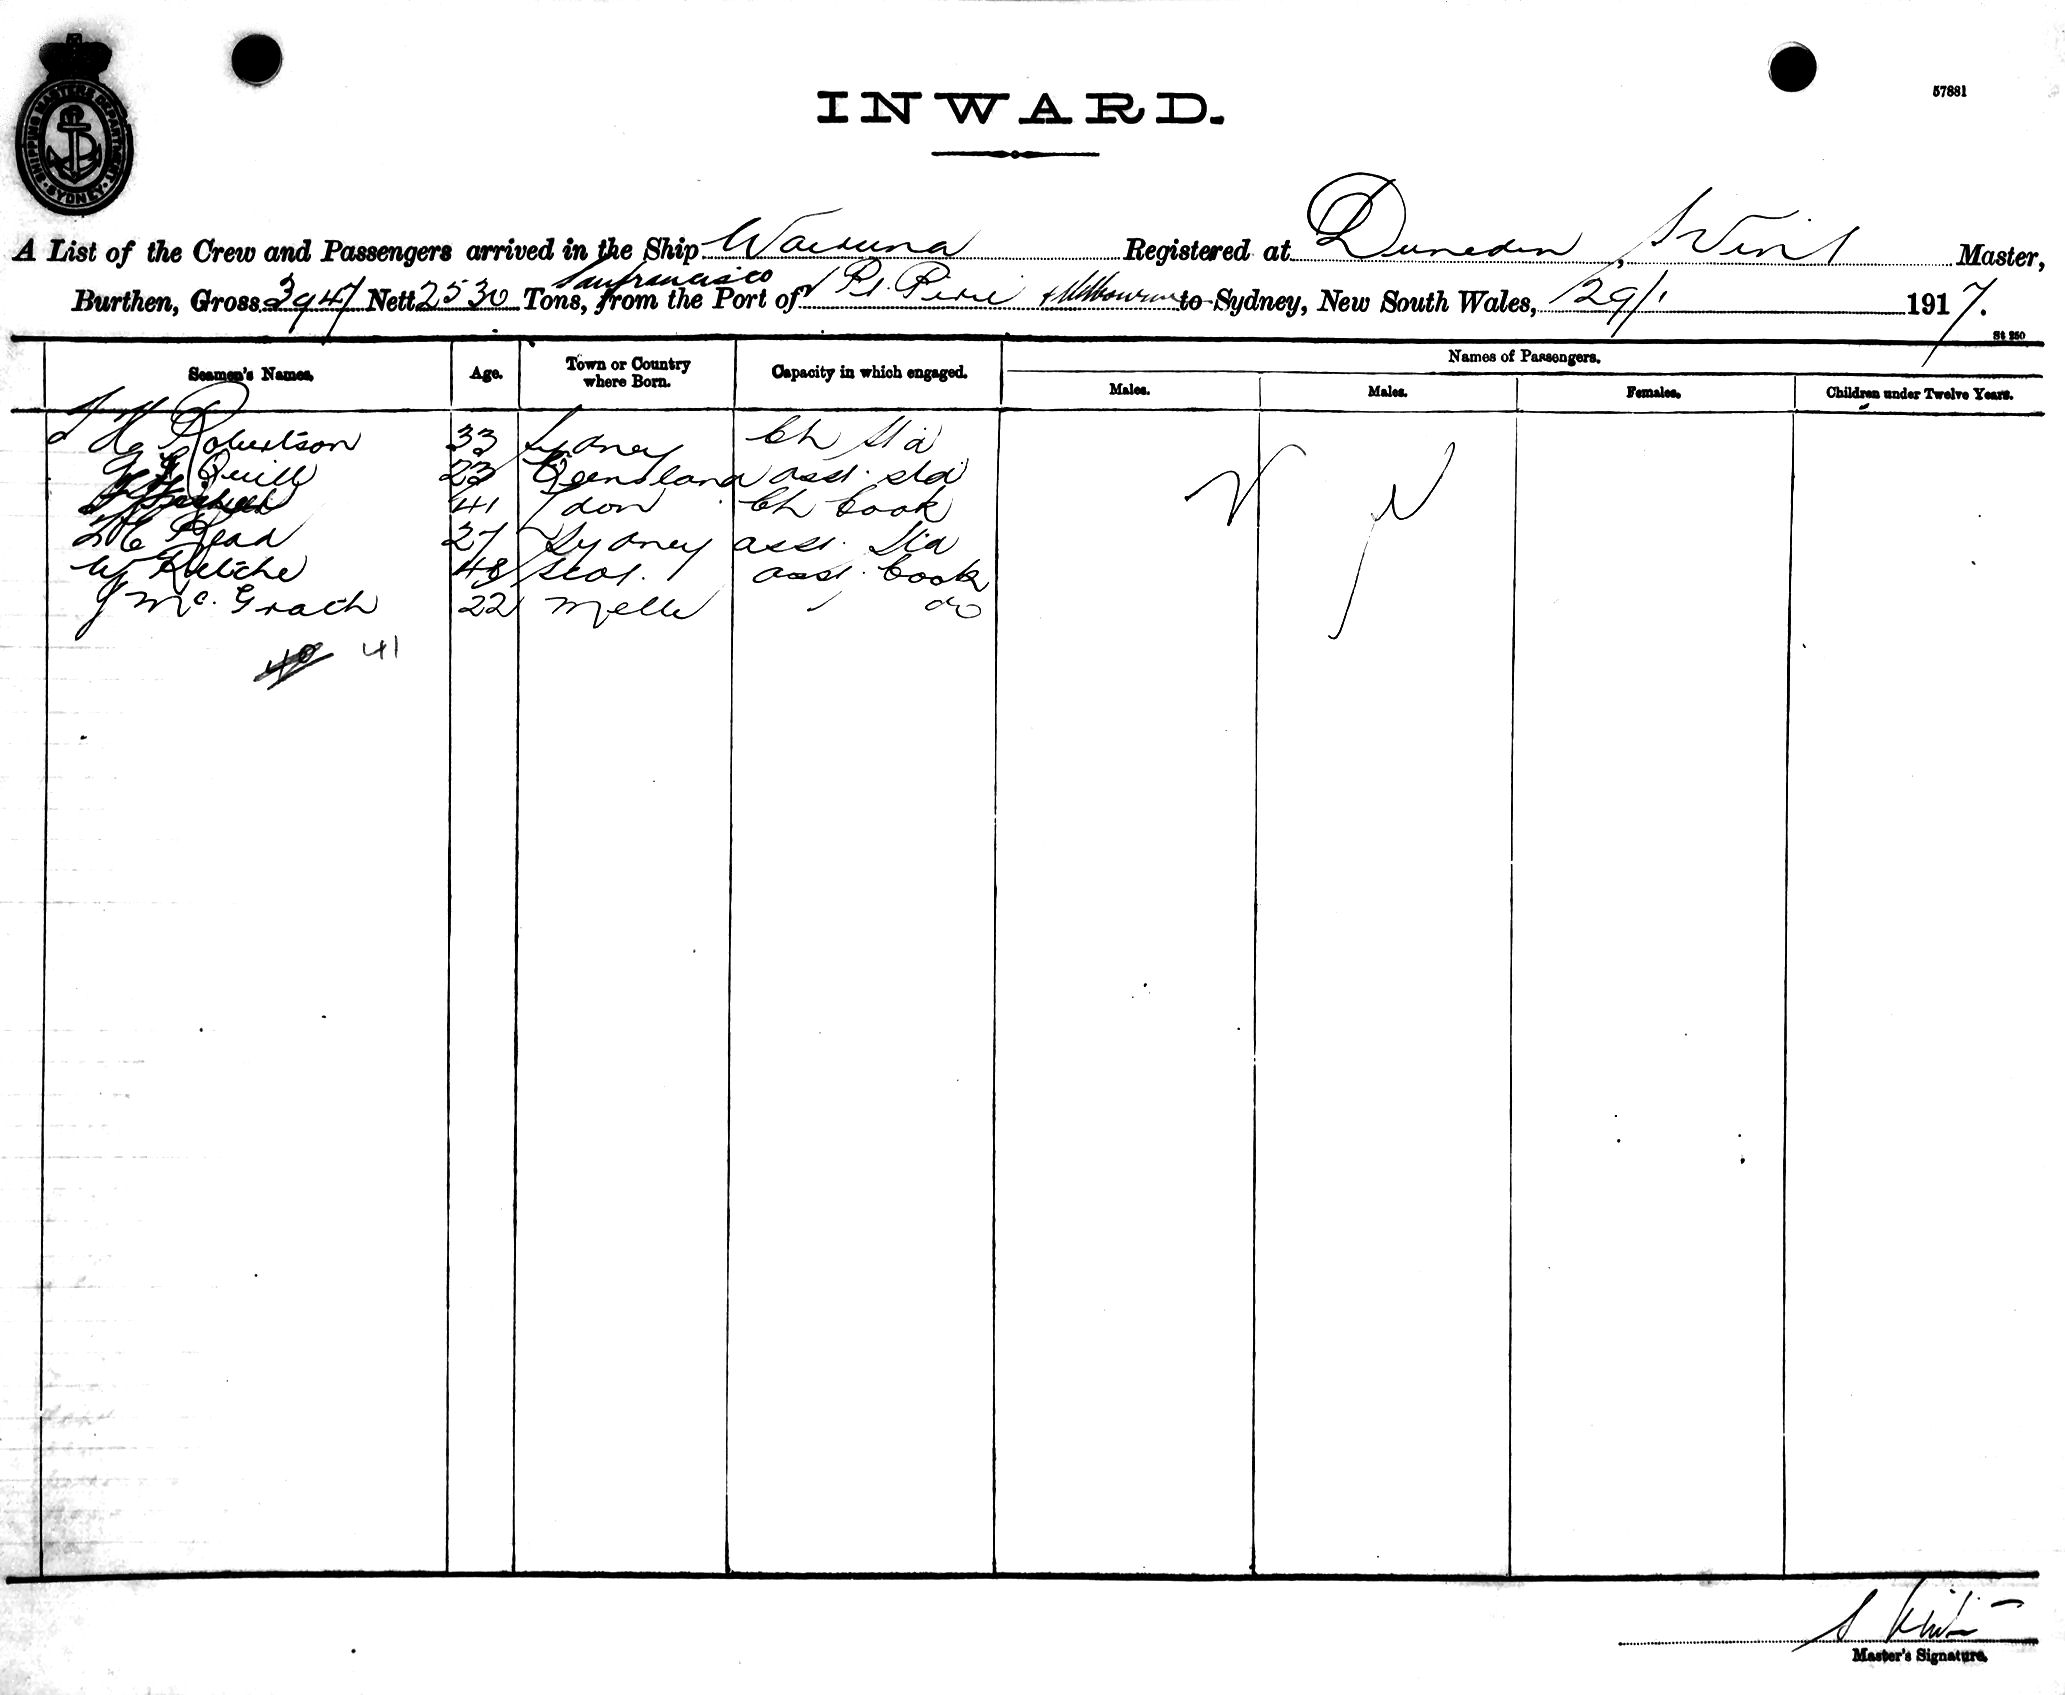 SHIPPING MASTERS DEPARTMENT
SYDNEY
57881
INWARD.
A List of the Crew and Passengers arrived in the Ship Wairuna Registered at Dunedin, Master,
Sanfrancisco
Burthen, Gross 3947 Nett 2530 Tons, from the Port of Pt. Pirie + Melbourne to Sydney, New South Wales, 29/1 1917.
St 250
Seamen's Names. Age. Town or Country where Born. Capacity in which engaged. Names of Passengers.
Males. Males. Females. Children under Twelve Years.
Robertson 33 Sydney Ch Std
Quill 23 Queensland asst. std
41 Ldon Ch Cook
Read 27 Sydney asst. Std
W Ritchie 48 Scot. asst. Cook
J McGrath 22 Melb do
40 41
Master's Signature.